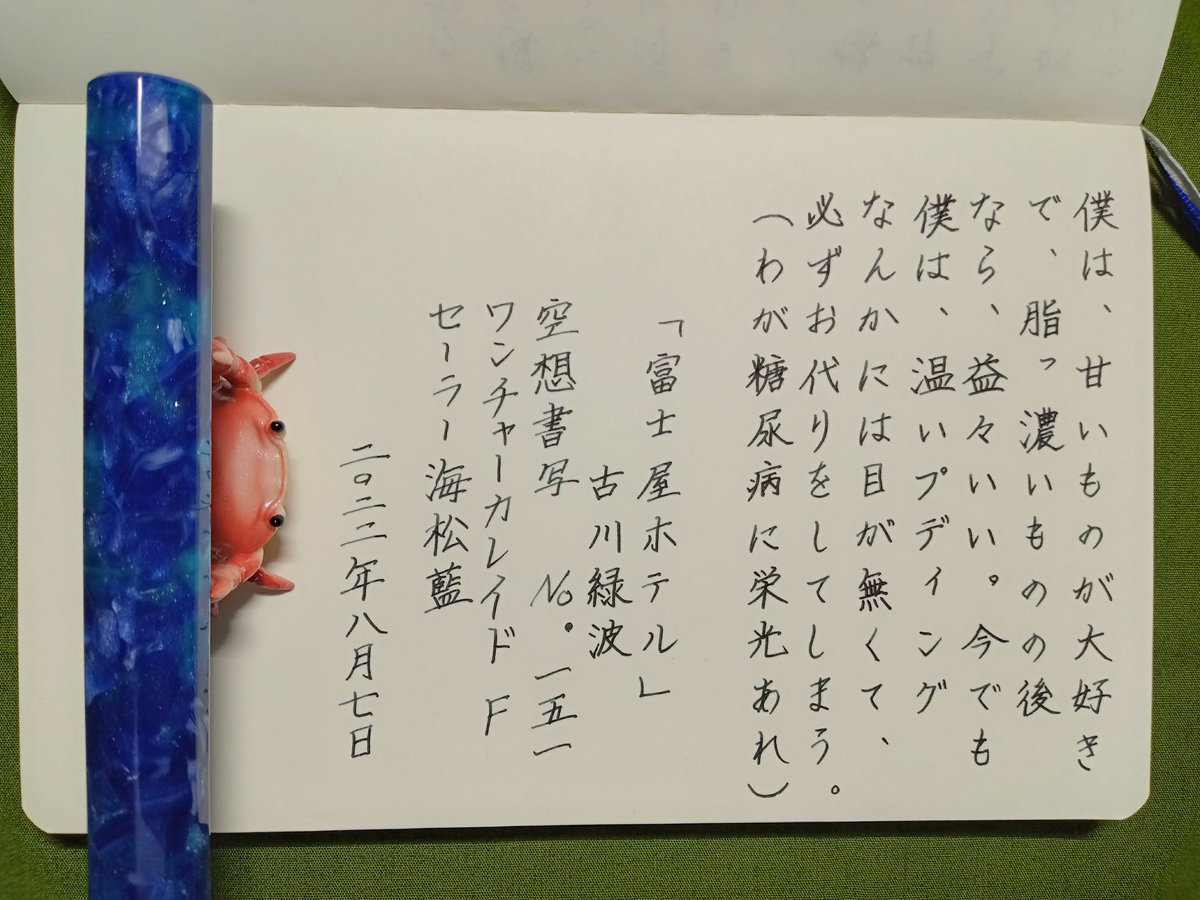 僕は、甘いものが大好き
で、脂っ濃いものの後
なら、益々いい。今でも
僕は、温いプディング
なんかには目が無くて、
必ずお代りをしてしまう。
（わが糖尿病に栄光あれ）
「富士屋ホテル」
古川緑波
空想書写 No.一五一
ワンチャーカレイド F
セーラー海松藍
二〇二二年八月七日